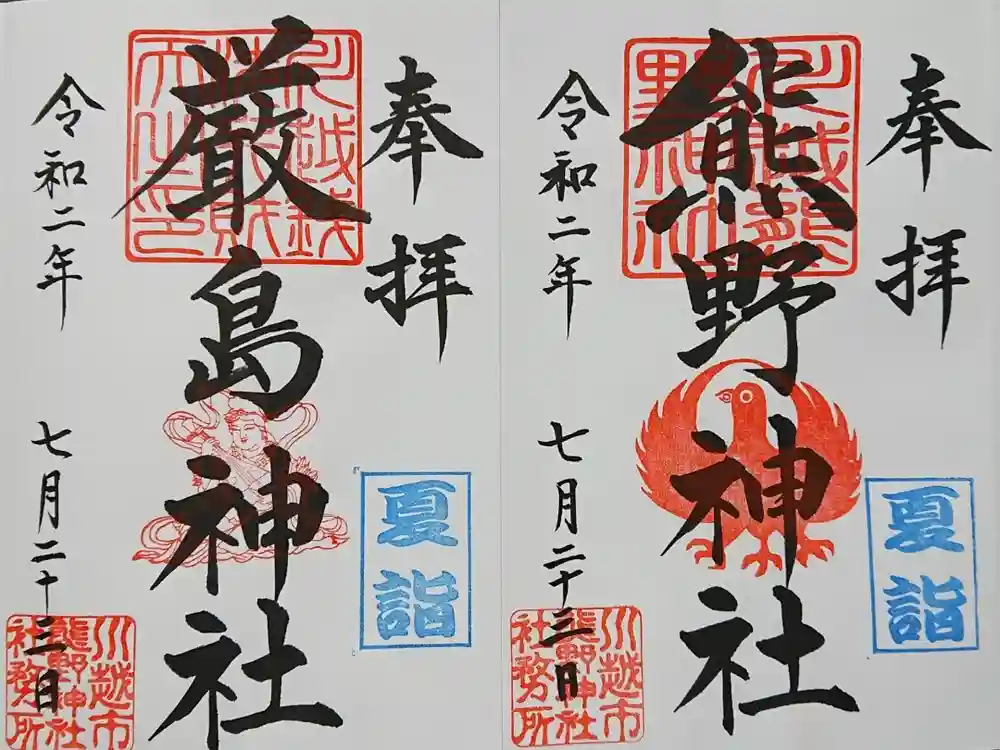 奉拝
熊野神社
夏詣
川越市
熊野神社
社務所
令和二年 七月二十三日
奉拝
厳島神社
夏詣
川越市
熊野神社
社務所
令和二年 七月二十三日